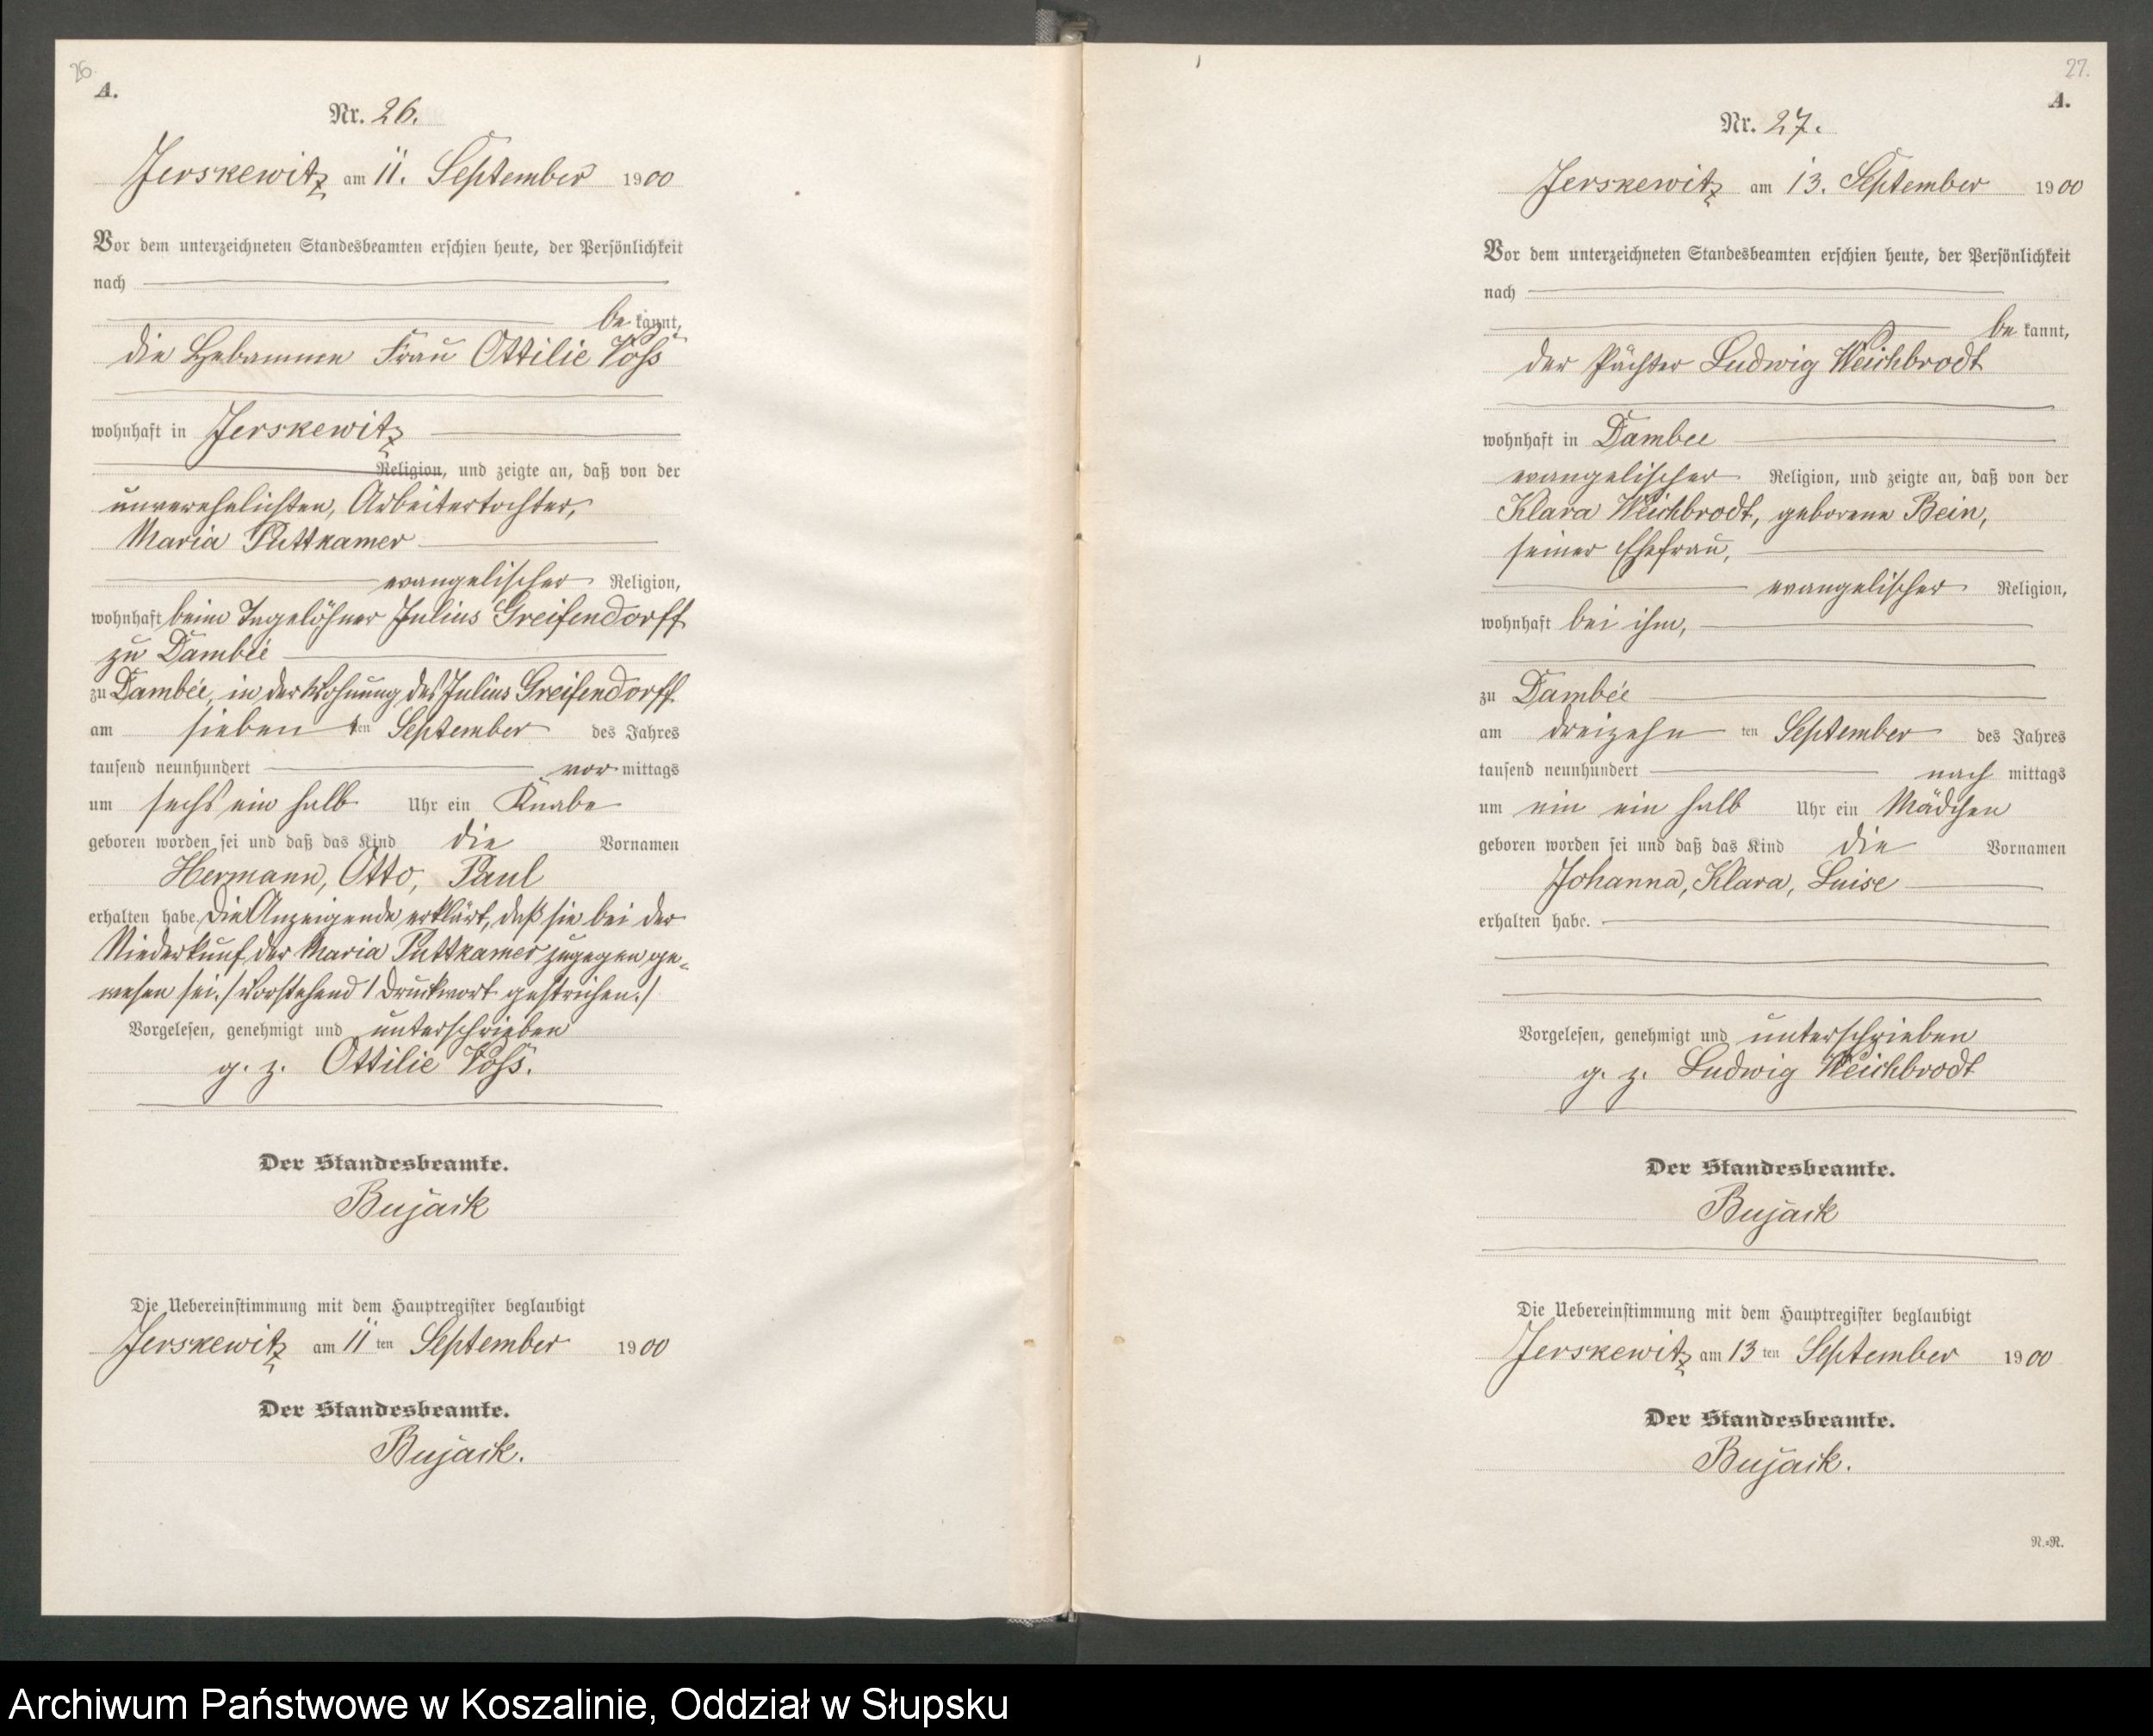 26.
A.
Nr. 26.
Jerskewitz am 11. September 1900
Vor dem unterzeichneten Standesbeamten erschien heute, der Persönlichkeit
nach
bekannt,
die Hebamme Frau Ottilie Voß
wohnhaft in Jerskewitz
Religion, und zeigte an, daß von der
unverehelichten, Arbeitertochter,
Maria Puttkamer
evangelischer Religion,
wohnhaft beim Tagelöhner Julius Greifendorff
zu Dambée
zu Dambée, in der Wohnung des Julius Greifendorff
am siebenten September des Jahres
tausend neunhundert vormittags
um sechs ein halb Uhr ein Knabe
geboren worden sei und daß das Kind die Vornamen
Hermann, Otto, Paul
erhalten habe. Die Anzeigende erklärt, daß sie bei der
Niederkunf der Maria Puttkamer zugegen ge-
wesen sei. / Vorstehend 1 Druckwort gestrichen. /
Vorgelesen, genehmigt und unterschrieben
g. z. Ottilie Voß.
Der Standesbeamte.
Bujack
Die Uebereinstimmung mit dem Hauptregister beglaubigt
Jerskewitz am 11ten September 1900
Der Standesbeamte.
Bujack.
27.
A.
Nr. 27.
Jerskewitz am 13. September 1900
Vor dem unterzeichneten Standesbeamten erschien heute, der Persönlichkeit
nach
bekannt,
der Pächter Ludwig Weichbrodt
wohnhaft in Dambee
evangelischer Religion, und zeigte an, daß von der
Klara Weichbrodt, geborene Bein,
seiner Ehefrau,
evangelischer Religion,
wohnhaft bei ihm,
zu Dambée
am dreizehnten September des Jahres
tausend neunhundert nachmittags
um ein ein halb Uhr ein Mädchen
geboren worden sei und daß das Kind die Vornamen
Johanna, Klara, Luise
erhalten habe.
Vorgelesen, genehmigt und unterschrieben
g. z. Ludwig Weichbrodt
Der Standesbeamte.
Bujack
Die Uebereinstimmung mit dem Hauptregister beglaubigt
Jerskewitz am 13ten September 1900
Der Standesbeamte.
Bujack.
N.=R.
Archiwum Państwowe w Koszalinie, Oddział w Słupsku